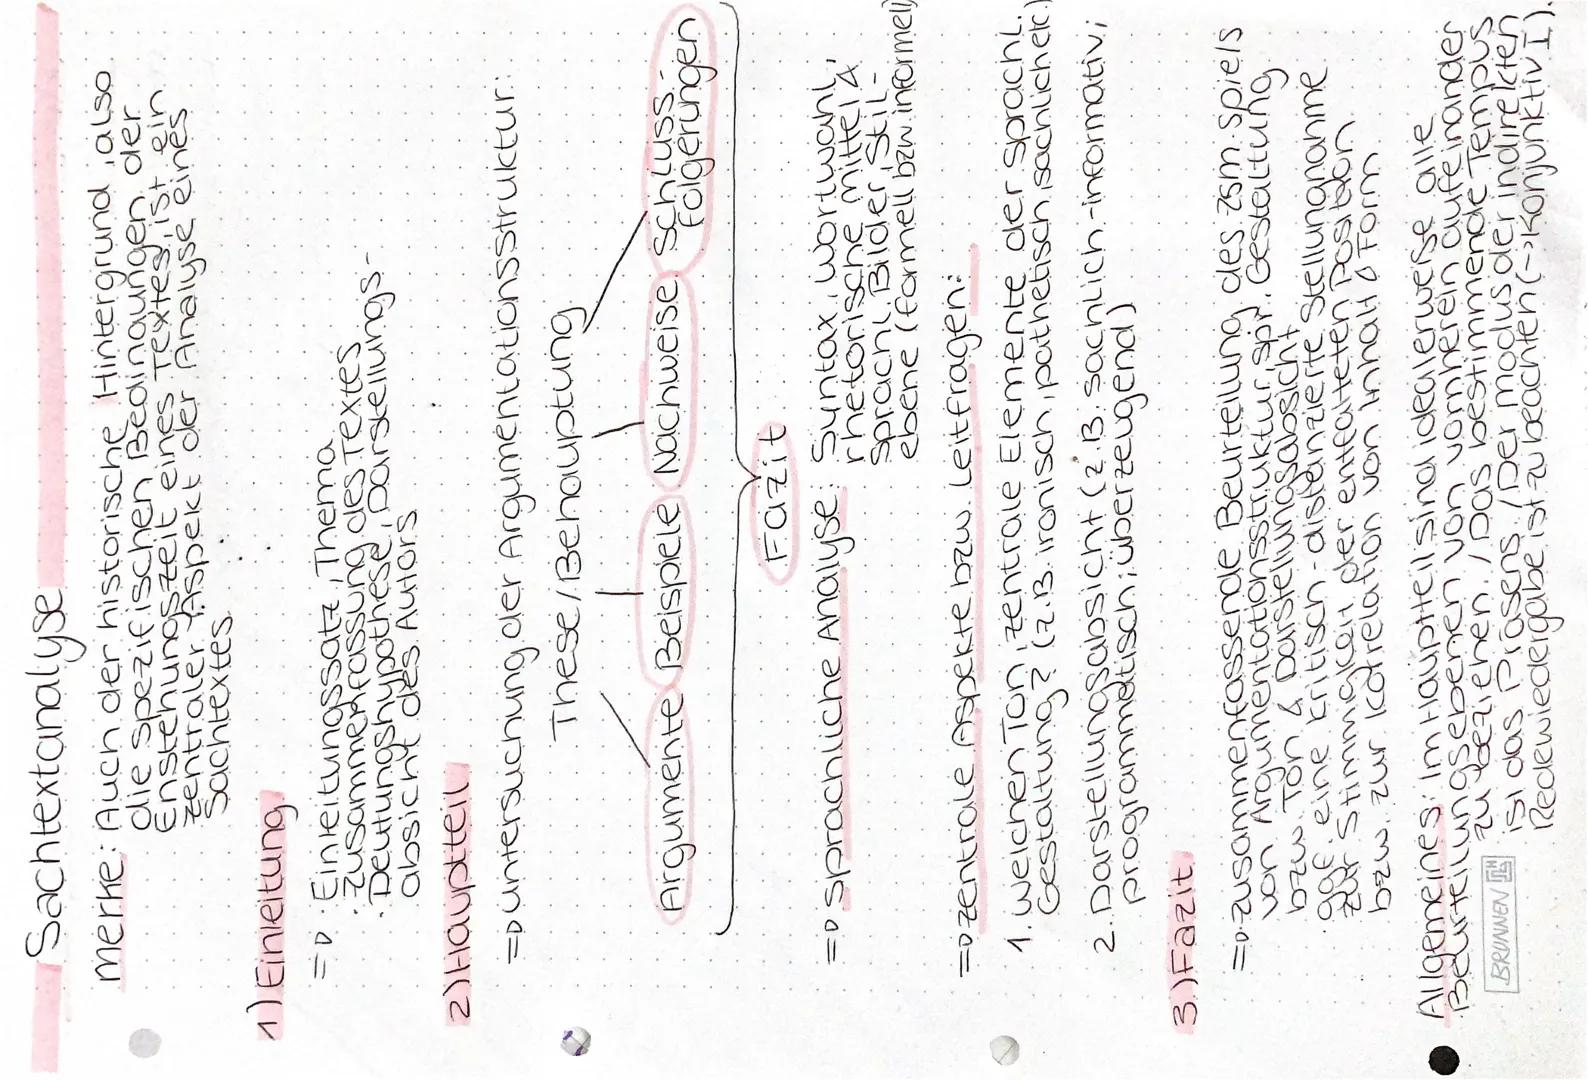 Sachtextanalyse
Merke: Auch der historische Hintergrund, also
die spezifischen Bedingungen der
Enstehungszeit eines Textes, ist ein
zentraler Aspekt der Analyse eines
Sachtextes.
1) Einleitung
=> · Einleitungssatz, Thema
· Zusammenfassung des Textes
· Deutungshypothese, Darstellungs-
absicht des Autors
2) Hauptteil
=> Untersuchung der Argumentationsstruktur:
These / Behauptung
Argumente Beispiele Nachweise Schluss-
folgerungen
Fazit
=> sprachliche Analyse: Syntax, Wortwahl,
rhetorische Mittel &
sprachl. Bilder, Stil-
ebene (formell bzw. informell)
=> zentrale Aspekte bzw. Leitfragen:
1. Welchen Ton, zentrale Elemente der sprachl.
Gestaltung? (z.B. ironisch, pathetisch, sachlich etc.)
2. Darstellungsabsicht (z.B. sachlich-informativ;
programmatisch; überzeugend)
3.) Fazit
=> · zusammenfassende Beurteilung des zsm.spiels
von Argumentationsstruktur, spr. Gestaltung
bzw. Ton & Darstellungsabsicht
· ggf. eine kritisch-distanzierte Stellungnahme
zur Stimmigkeit der entfalteten Position
bzw. zur Korrelation von Inhalt & Form
Allgemeines: Im Hauptteil sind idealerweise alle
Beurteilungsebenen von vornherein aufeinander
zu beziehen. / Das bestimmende Tempus
ist das Präsens. / Der Modus der indirekten
Redewiedergabe ist zu beachten (-> Konjunktiv I).
BRUNNEN